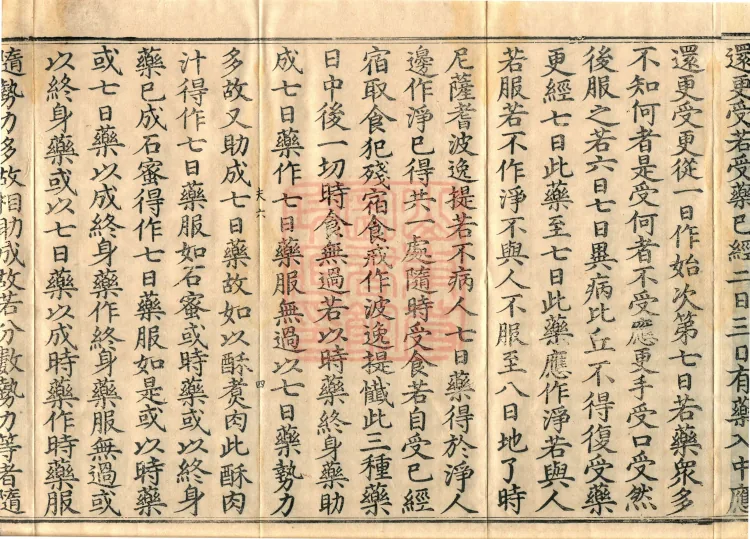 還更受若受藥已經二日三日有藥入中應
還更受更從一日作始次第七日若藥衆多
不知何者是受何者不受應更手受口受然
後服之若六日七日異病比丘不得復受藥
更經七日此藥至七日此藥應作淨若與人
若服若不作淨不與人不服至八日地了時
尼薩耆波逸提若不病人七日藥得於淨人
邊作淨已得共一處隨時受食若自受已經
宿取食犯殘宿食戒作波逸提懺此三種藥
日中後一切時食無過若以時藥終身藥助
成七日藥作七日藥服無過以七日藥勢力
夫六 四
多故又助成七日藥故如以酥煑肉此酥肉
汁得作七日藥服如石蜜或時藥或以終身
藥已成石蜜得作七日藥服如是或以時藥
或七日藥以成終身藥作終身藥服無過或
以終身藥或以七日藥以成時藥作時藥服
隨勢力多故相助成故若分數勢力等者隨